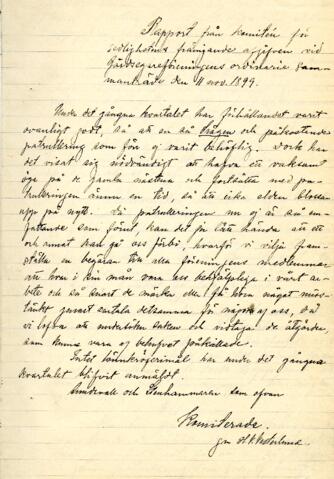 Rapport från komitén för
sedlighetens främjande afgifven vid
Gårdsegareföreningens ordinarie sam-
mankäde den 11 nov. 1899.
Under det gångna kvartalet har förhållandet varit
ovanligt godt, så att en så trägen och påkostande
patrullering som förr ej varit behöflig. Dock har
det visat sig nödvändigt att hafva ett vaksamt
öga på de gamla nästena och fortsätta med pa-
trulleringen ännu en tid, så att icke elden blossar
upp på nytt. Då patrulleringen nu ej är så om-
fattande som förut, kan det ju lätt hända att ett
och annat kan gå oss förbi, hvarför vi vilja fram-
ställa en begäran till alla föreningens medlemmar
att hvar i sin mån vara oss behjälpliga i vårt ar-
bete och så snart de märker eller få höra något miss-
tänkt genast omtala detsamma för någon af oss, då
vi lofva att undersöka saken och vidtaga de åtgärder,
som kunna vara af behofvet påkallade.
Intet lönnkrögerimål har under det gångna
kvartalet blifvit anmäldt.
Sundsvall och Stenhammaren som ofvan
Komiterade.
gm